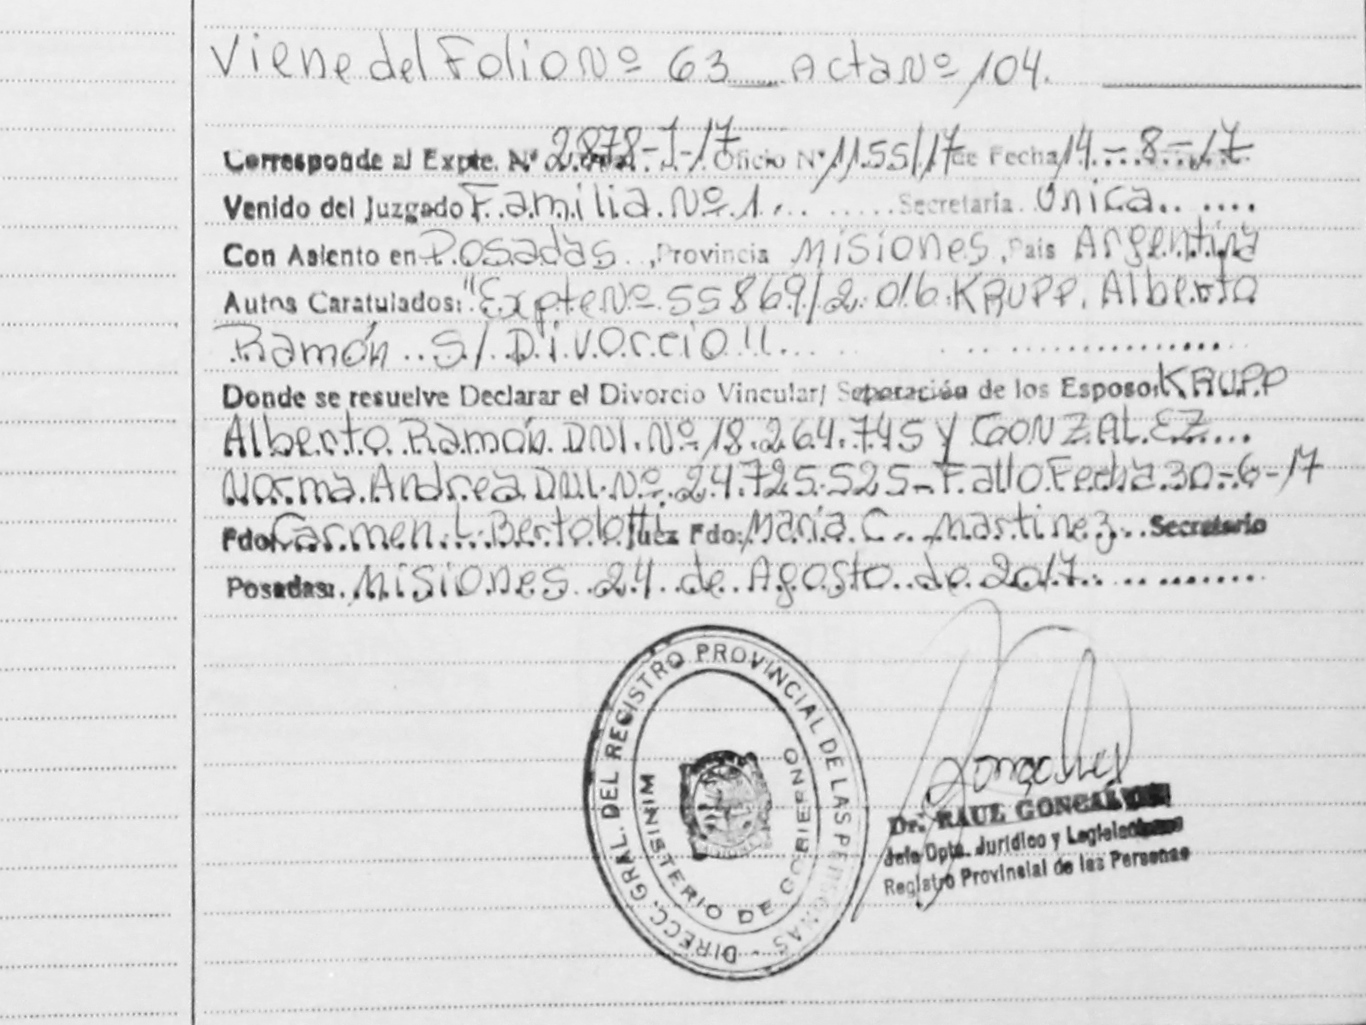 Viene del Folio Nº 63 Acta Nº 104.
Corresponde al Expte. Nº 2878-J-17 Oficio Nº 1155/17 de Fecha 14-8-17
Venido del Juzgado Familia Nº 1 Secretaría Única
Con Asiento en Posadas, Provincia Misiones, País Argentina
Autos Caratulados: "Expte Nº 55869/2016 KRUPP, Alberto
Ramón S/ Divorcio"
Donde se resuelve Declarar el Divorcio Vincular/ Separación de los Esposos KRUPP
Alberto Ramón DNI. Nº 18.264.745 y GONZALEZ
Norma Andrea DNI. Nº 24.725.525 - Fallo Fecha 30-6-17
Fdo: Carmen L. Bertolotti Juez Fdo: María C. Martinez Secretario
Posadas: Misiones 24 de Agosto de 2017.
DIRECC. GRAL. DEL REGISTRO PROVINCIAL DE LAS PERSONAS -
MINISTERIO DE GOBIERNO
Dr. RAUL
Jefe Dpto. Jurídico y
Registro Provincial de las Personas